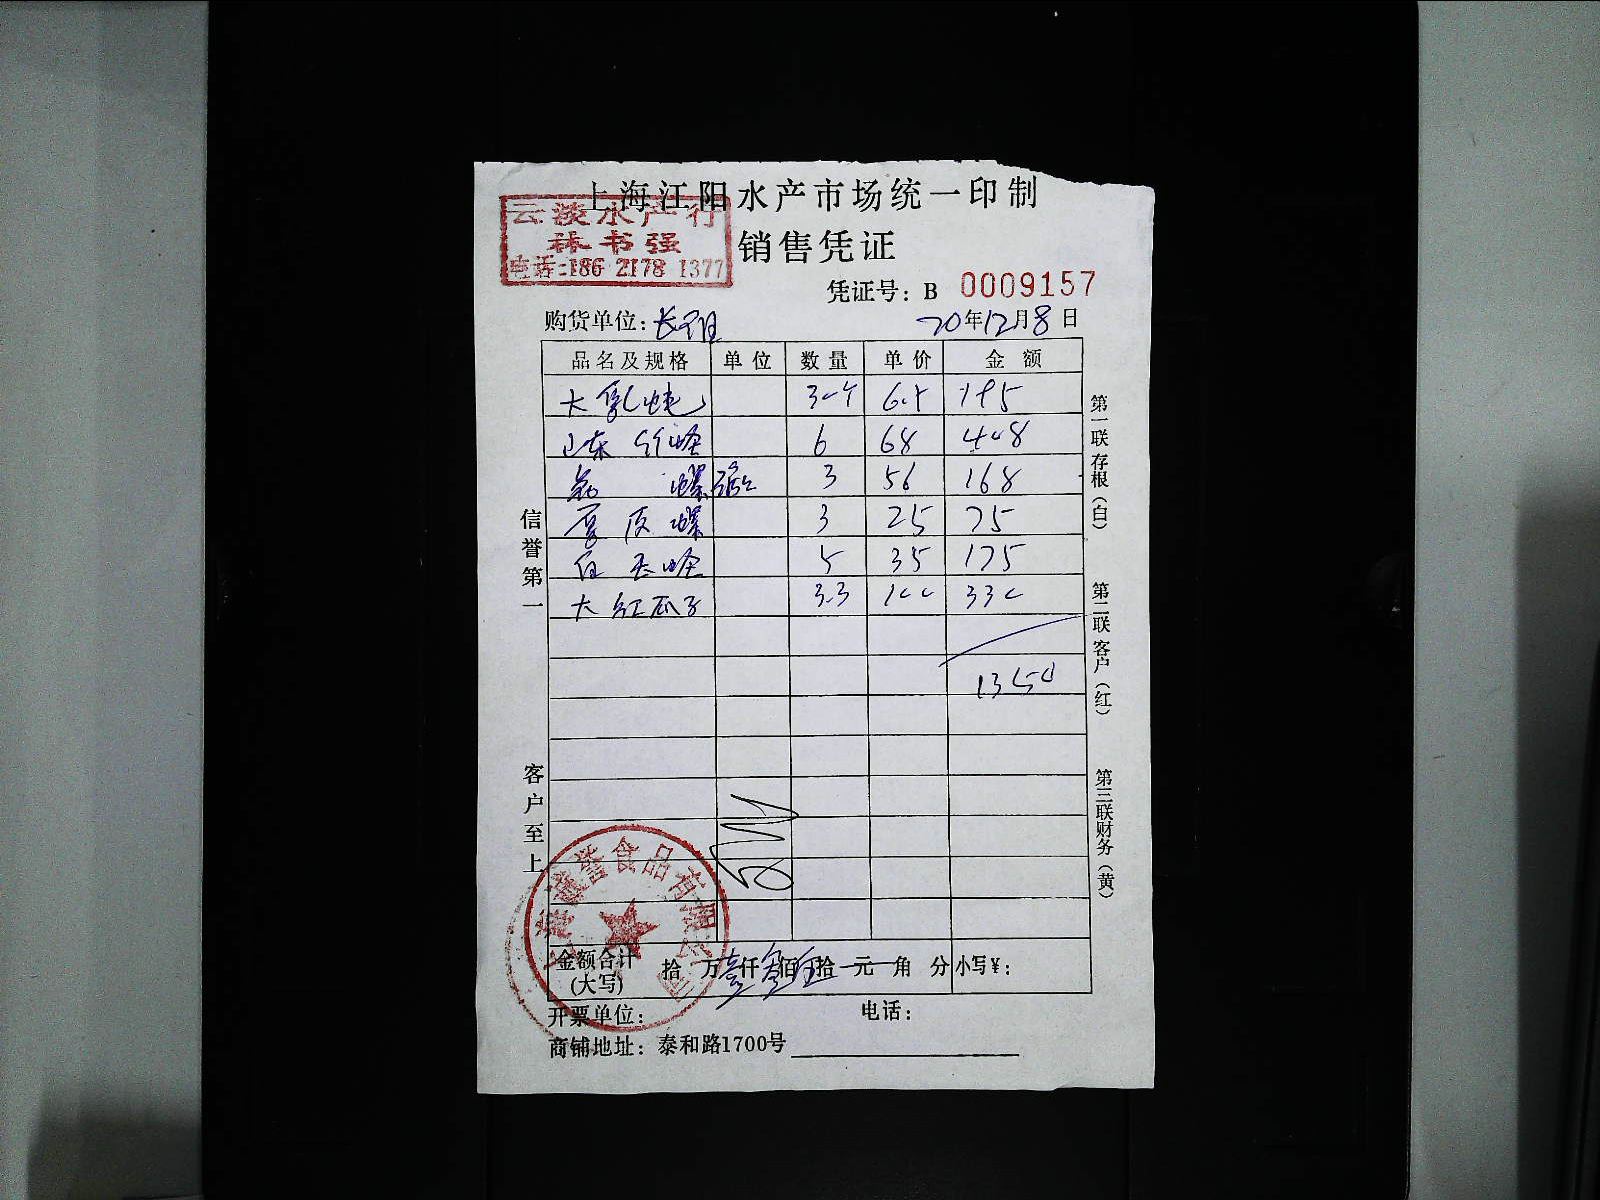 上海江阳水产市场统一印制
云淡水产行
林书强
电话:186 2178 1377
销售凭证
凭证号: B 0009157
购货单位:
20年12月8日
品名及规格 单位 数量 单价 金额
大
山东 竹蛏 6 68 408
螺 3 56 168
厚皮螺 3 25 75
白玉蛏 5 35 175
大红瓜子 3.3 100 330
1350
信誉第一
客户至上
第一联存根(白)
第二联客户(红)
第三联财务(黄)
誉食品有限公司
金额合计(大写) 拾 万壹仟叁佰伍拾 元 角 分 小写¥:
开票单位: 电话:
商铺地址: 泰和路1700号